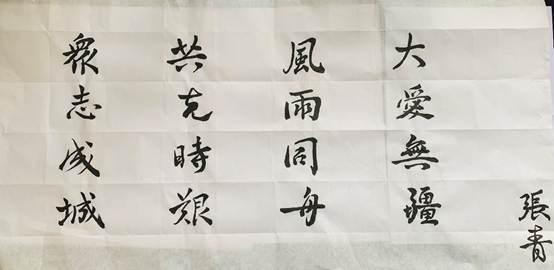 大愛無疆
風雨同舟
共克時艱
衆志成城
張青